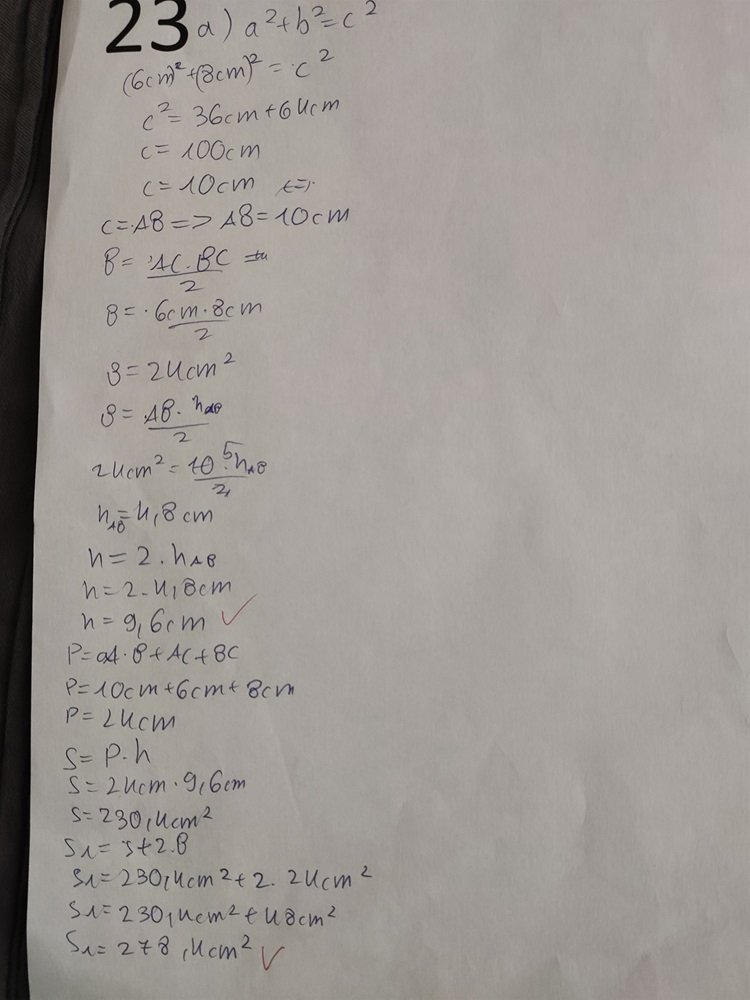 23 a) a²+b²=c²
(6cm)²+(8cm)²=c²
c²=36cm+64cm
c=100cm
c=10cm
c=AB=>AB=10cm
B=AC.BC/2
B=6cm.8cm/2
B=24cm²
B=AB.hAB/2
24cm²=10 5.hAB/2
hAB=4,8cm
h=2.hAB
h=2.4,8cm
h=9,6cm ✓
P=A.B+AC+BC
P=10cm+6cm+8cm
P=24cm
S=P.h
S=24cm.9,6cm
S=230,4cm²
S1=S+2.B
S1=230,4cm²+2.24cm²
S1=230,4cm²+48cm²
S1=278,4cm² ✓